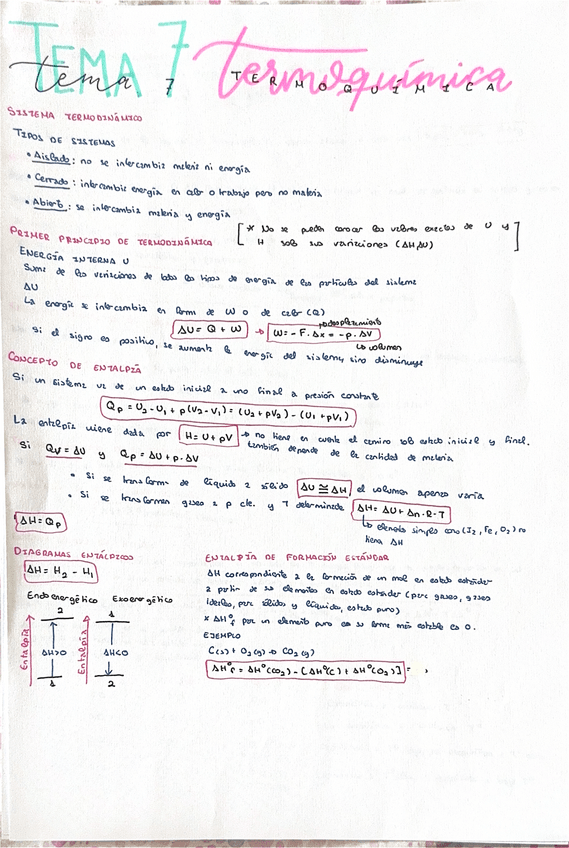 TEMA 7 termoquímica
tema 7 TERMOQUÍMICA
SISTEMA TERMODINÁMICO
TIPOS DE SISTEMAS
• Aislado: no se intercambia materia ni energía
• Cerrado: intercambia energía en calor o trabajo pero no materia
• Abierto: se intercambia materia y energía
[* No se pueden conocer los valores exactos de U y
H solo sus variaciones (ΔH, ΔU)]
PRIMER PRINCIPIO DE TERMODINÁMICA
ENERGÍA INTERNA U
Suma de las variaciones de todos los tipos de energía de las partículas del sistema
ΔU
La energía se intercambia en forma de W o de calor (Q)
desplazamiento
ΔU = Q + W → W = -F·Δx = -p·ΔV
↳ volumen
Si el signo es positivo, se aumenta la energía del sistema, sino disminuye
CONCEPTO DE ENTALPÍA
Si un sistema va de un estado inicial a uno final a presión constante
Qp = U2 - U1 + p(V2 - V1) = (U2 + pV2) - (U1 + pV1)
La entalpía viene dada por H = U + pV → no tiene en cuenta el camino solo estado inicial y final.
también depende de la cantidad de materia
Si Qv = ΔU y Qp = ΔU + p·ΔV
• Si se transforma de líquido a sólido ΔU ≅ ΔH el volumen apenas varía
• Si se transforman gases a p cte. y T determinada ΔH = ΔU + Δn·R·T
↳ elementos simples como (I2, Fe, O2) no
tienen ΔH
ΔH = Qp
DIAGRAMAS ENTÁLPICOS
ΔH = H2 - H1
Endoenergético Exoenergético
2 1
Entalpía ΔH>0 Entalpía ΔH<0
1 2
ENTALPÍA DE FORMACIÓN ESTÁNDAR
ΔH correspondiente a la formación de un mol en estado estándar
a partir de sus elementos en estado estándar (para gases, gases
ideales, para sólidos y líquidos, estado puro)
* ΔH°f por un elemento puro en su forma más estable es 0.
EJEMPLO
C(s) + O2(g) → CO2(g)
ΔH°f = ΔH°(CO2) - [ΔH°(C) + ΔH°(O2)] =